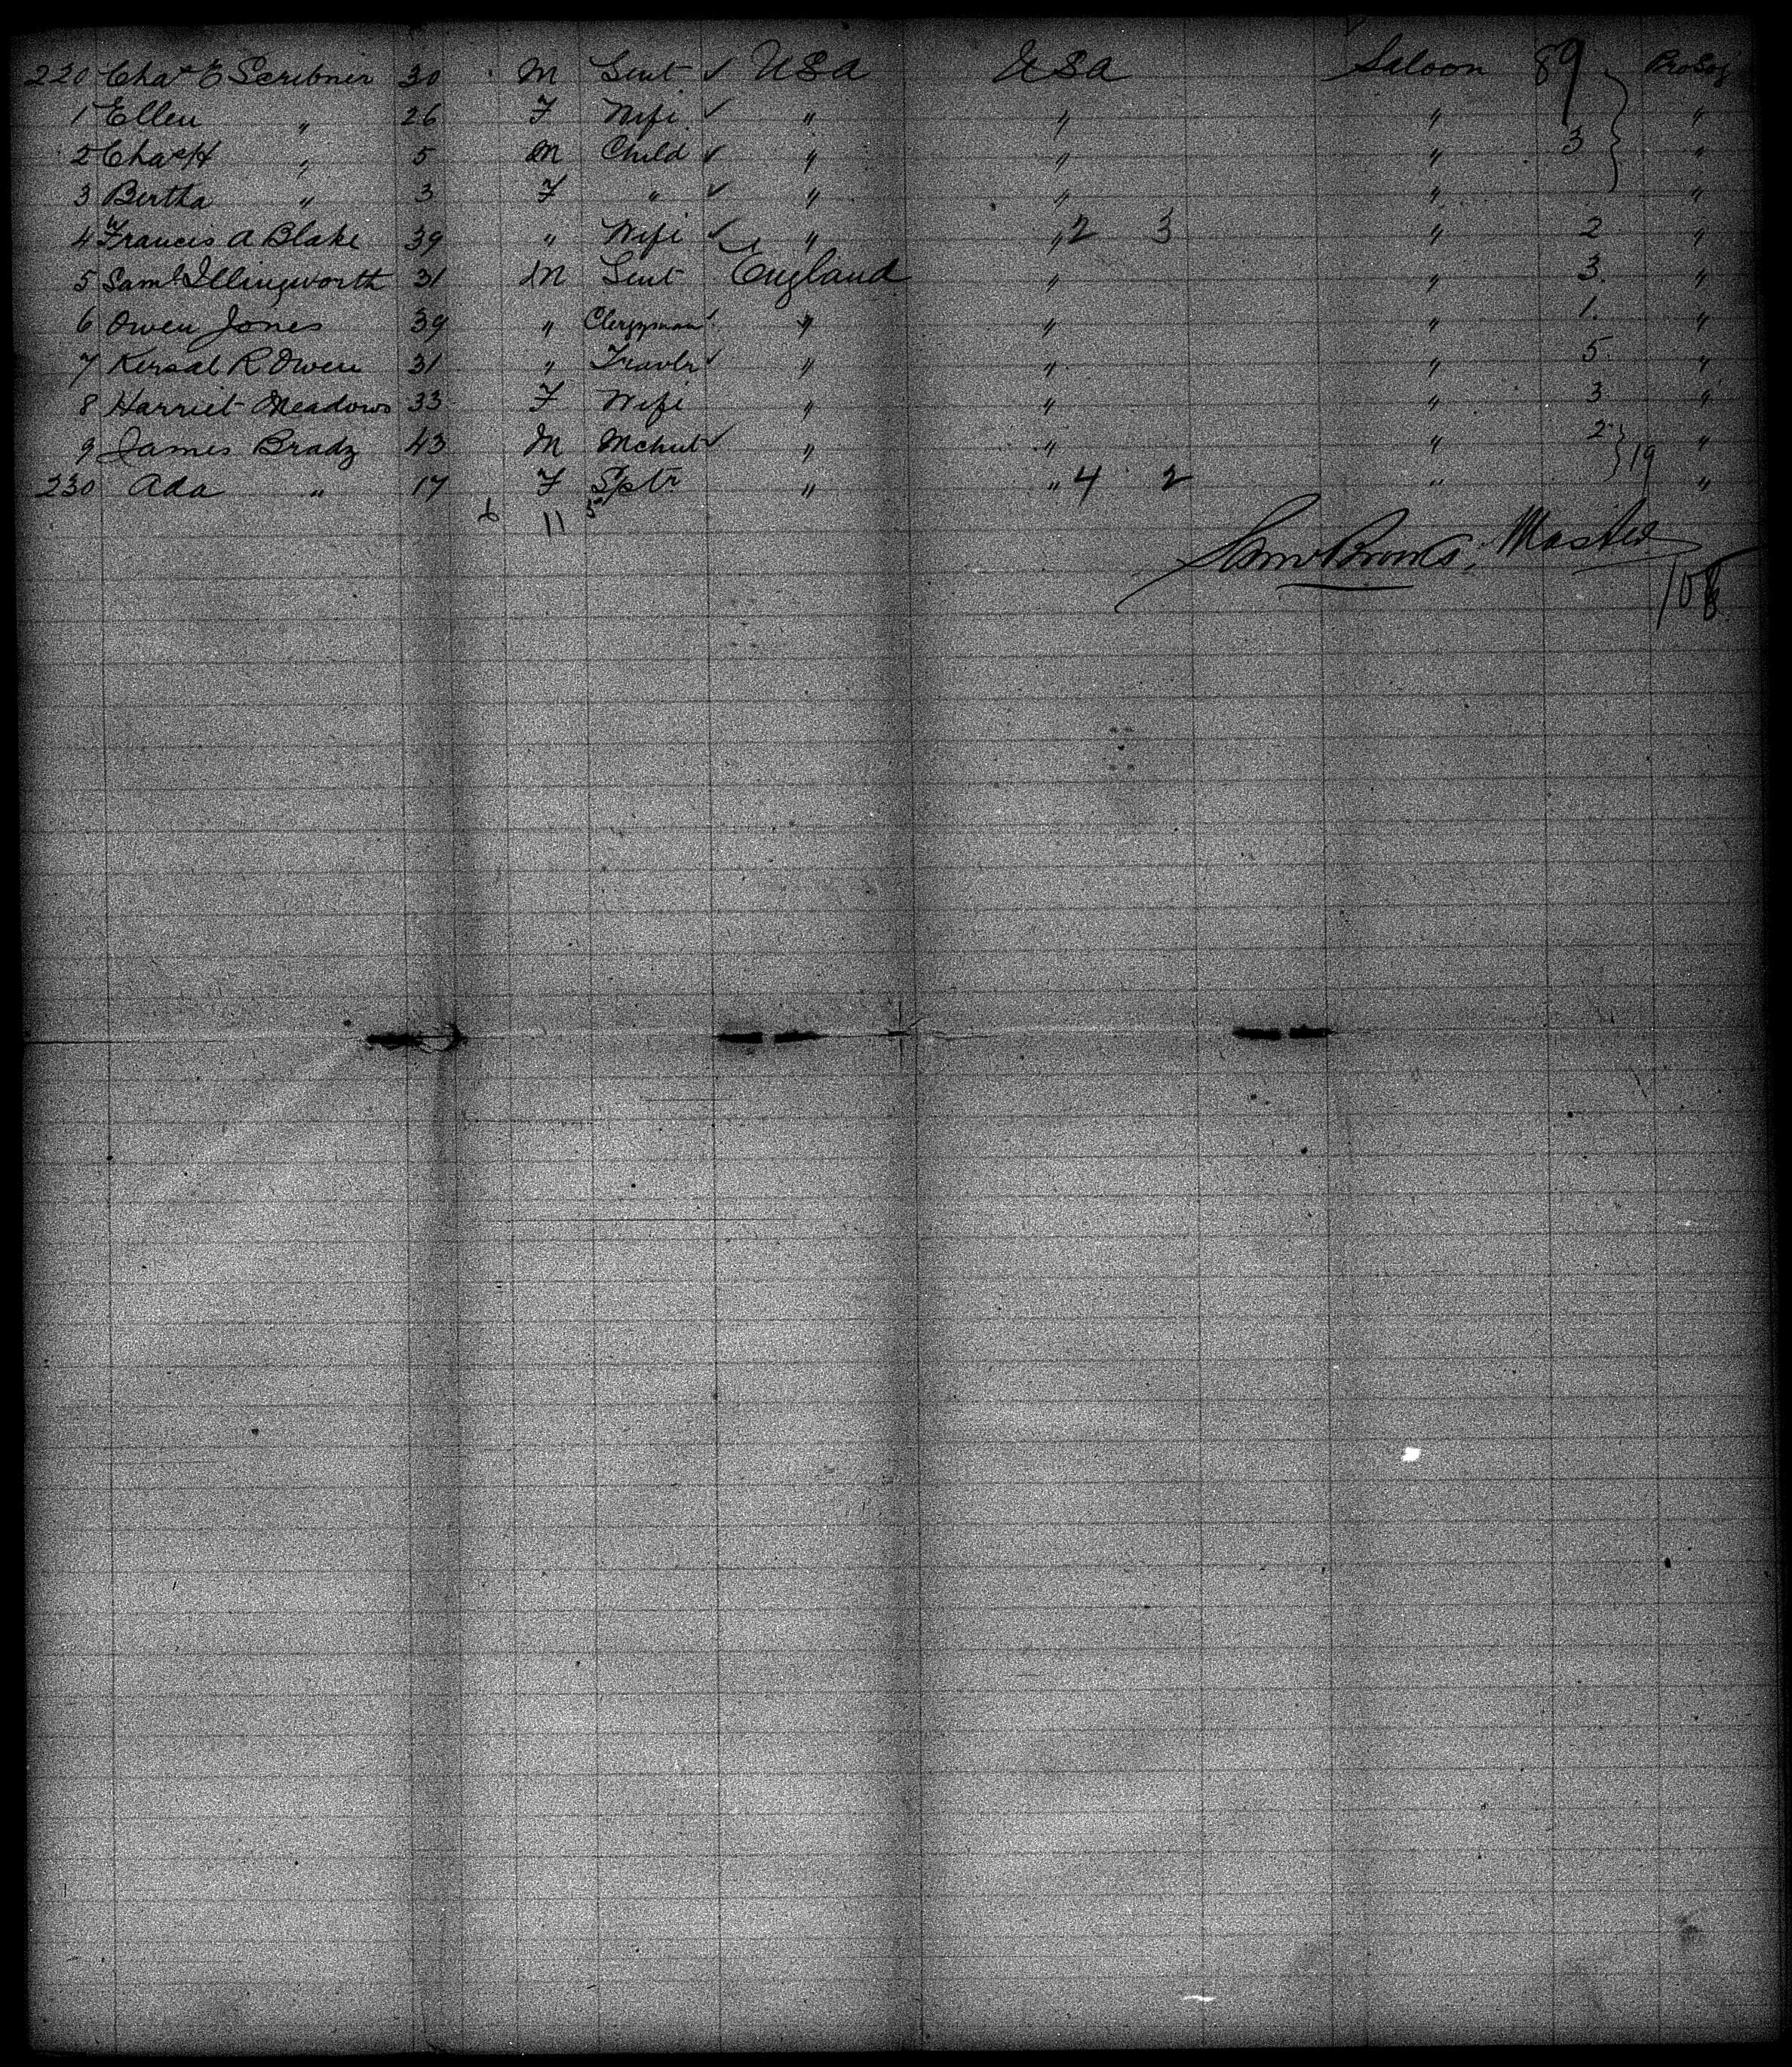 220 Chas E Scribner 30 M Gent ✓ USA USA Saloon 89
1 Ellen " 26 F Wife ✓ " " " "
2 Chas H " 5 M Child ✓ " " " 3 "
3 Bertha " 3 F " ✓ " " " "
4 Francis A Blake 39 " Wife ✓ " " 2 3 " 2 "
5 Saml Illingworth 31 M Gent England " " 3 "
6 Owen Jones 39 " Clergyman ✓ " " " 1 "
7 Kersal R Owen 31 " Travlr ✓ " " " 5 "
8 Harriet Meadows 33 F Wife " " " 3 "
9 James Brady 43 M Mchnt ✓ " " " 2 "
230 Ada " 17 F Sptr " " 4 2 " 19 "
6 11 5
Saml Brooks, Master
108